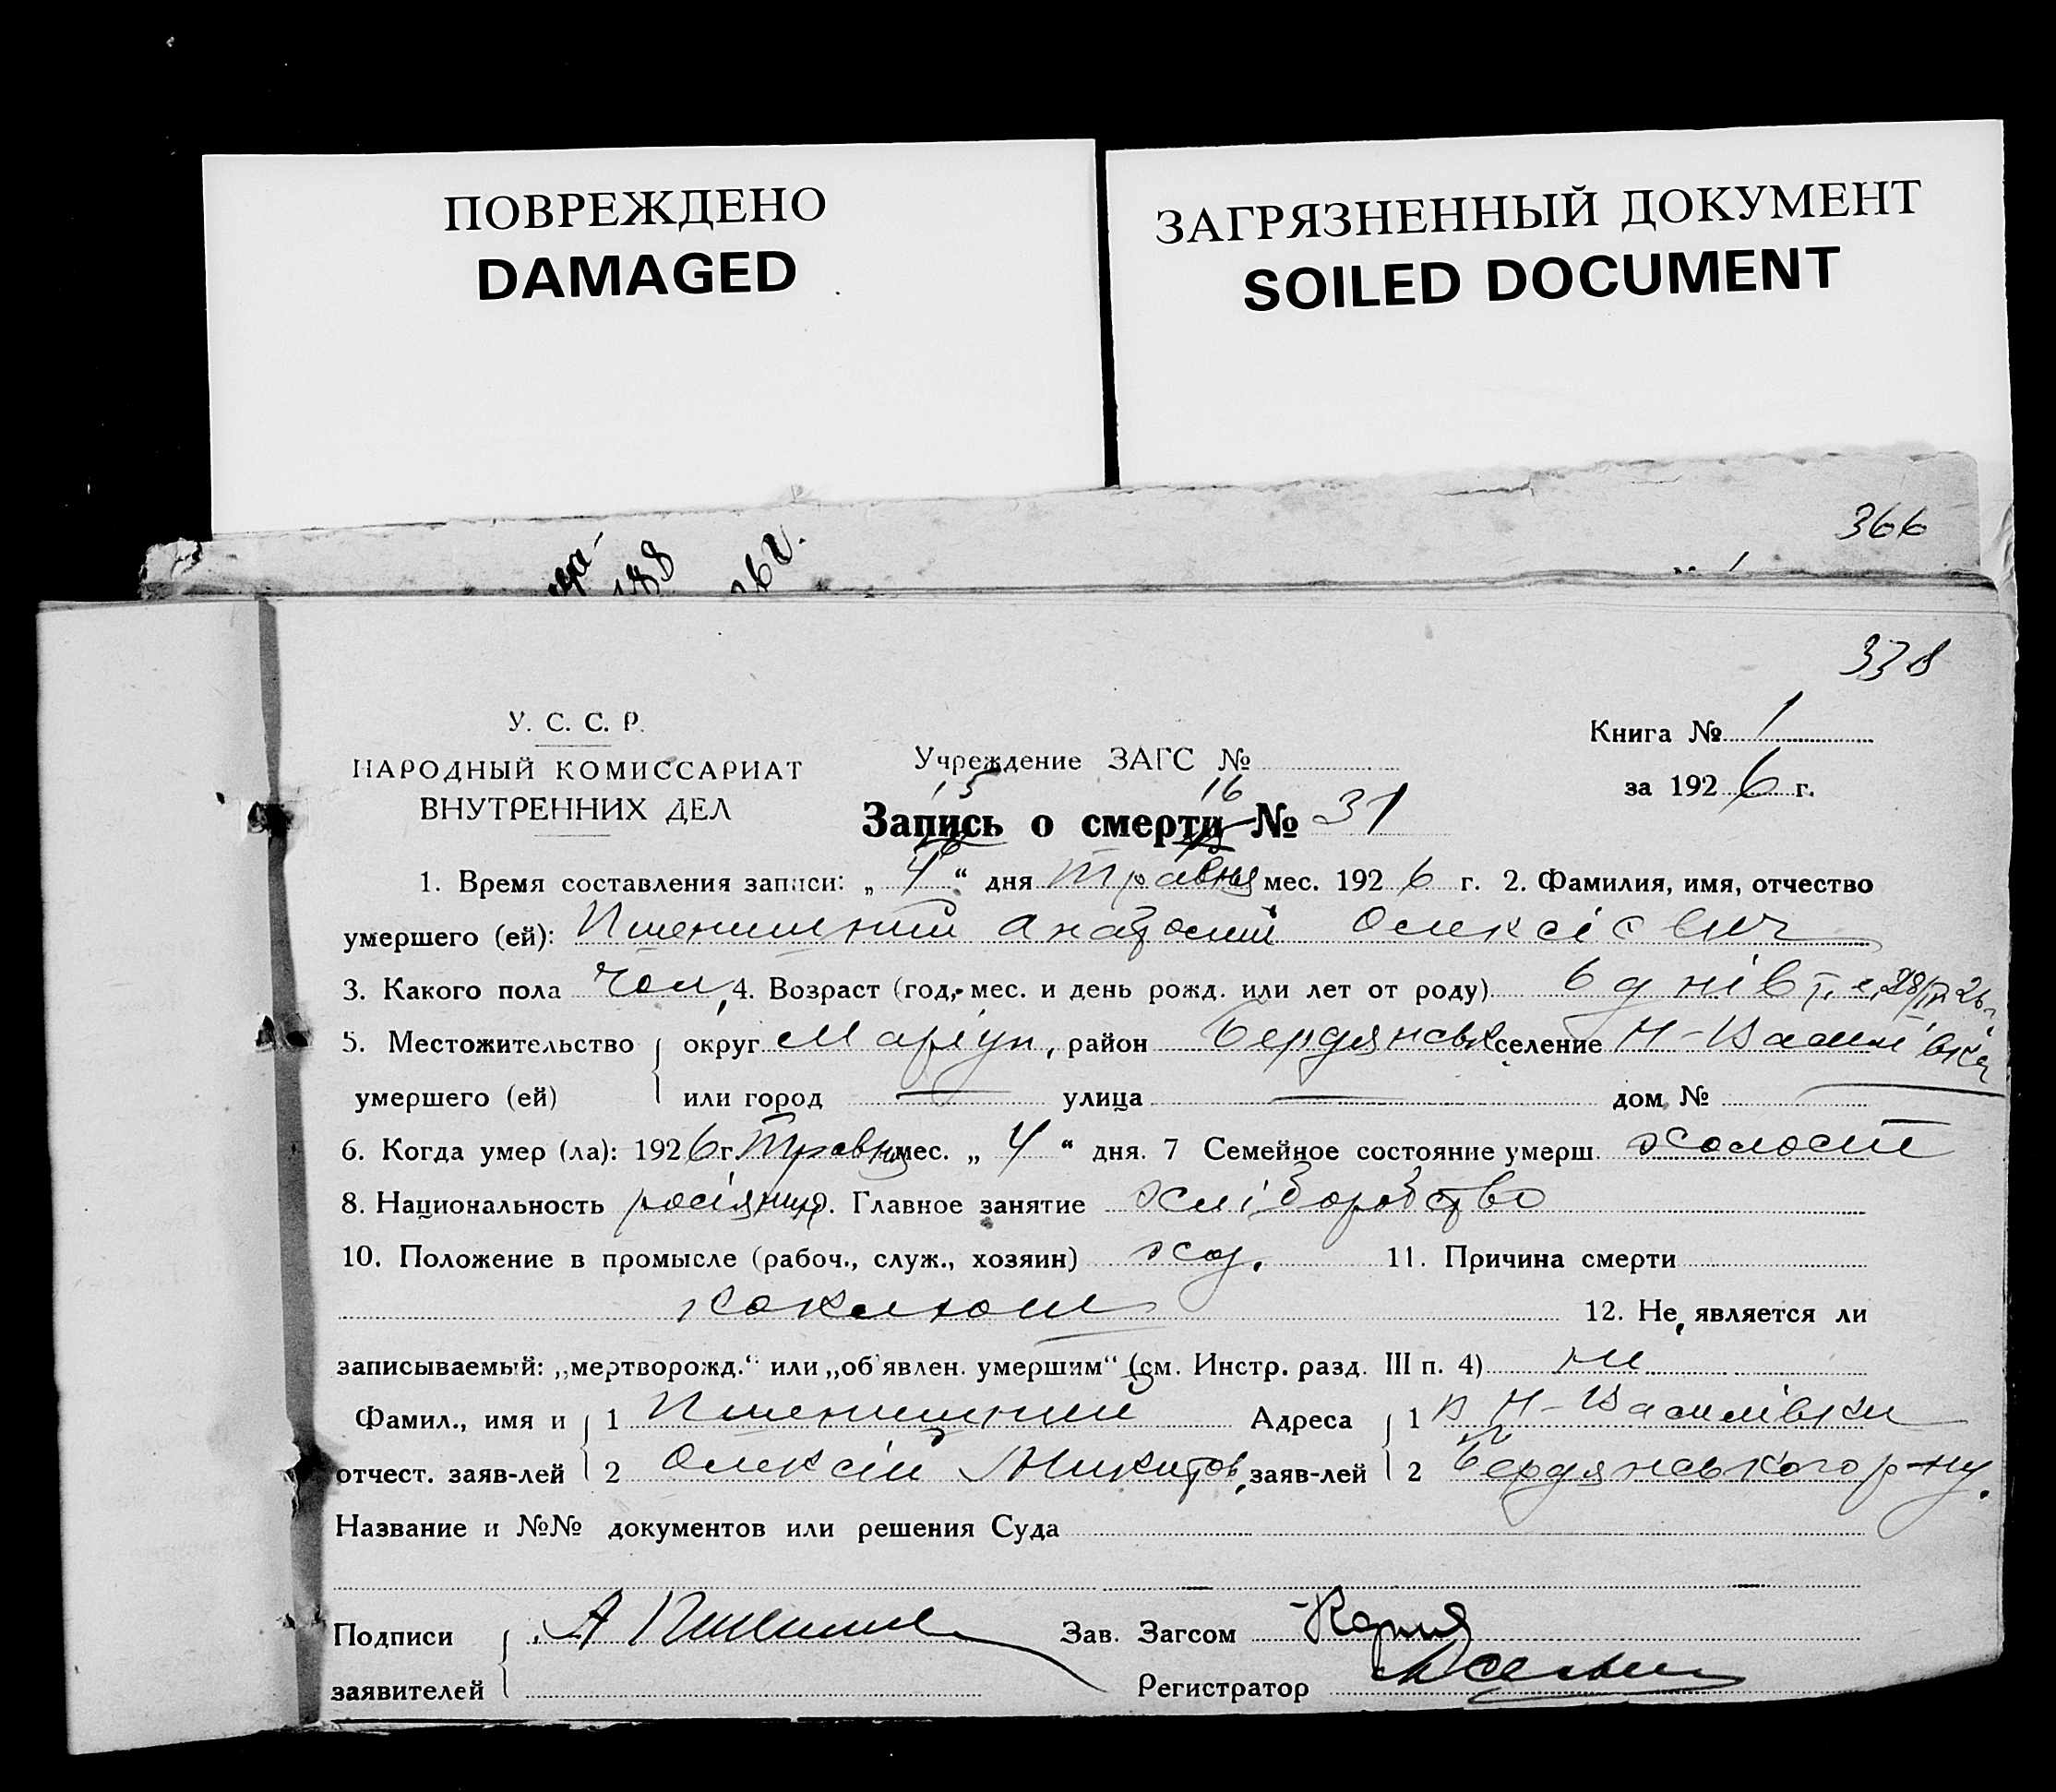 ПОВРЕЖДЕНО
DAMAGED
ЗАГРЯЗНЕННЫЙ ДОКУМЕНТ
SOILED DOCUMENT
366
188
338
У. С. С. Р.
НАРОДНЫЙ КОМИССАРИАТ
ВНУТРЕННИХ ДЕЛ
Учреждение ЗАГС №
Книга № 1
за 1926 г.
15 16
Запись о смерти № 31
1. Время составления записи: „4“ дня травня мес. 1926 г. 2. Фамилия, имя, отчество
умершего (ей): Пшеничний Анатолий Олексієвич
3. Какого пола чол, 4. Возраст (год, мес. и день рожд. или лет от роду) 6 днів т. е. 28/IV 26 г.
5. Местожительство округ Маріуп, район Бердянськ селение Н-Василівка
умершего (ей) или город — улица — дом № —
6. Когда умер (ла): 1926 г. Травня мес. „4“ дня. 7 Семейное состояние умерш. холост
8. Национальность росіянин 9. Главное занятие хліборобство
10. Положение в промысле (рабоч., служ., хозяин) хоз. 11. Причина смерти
коклюш 12. Не является ли
записываемый: „мертворожд.“ или „об'явлен. умершим“ (см. Инстр. разд. III п. 4) ни
Фамил., имя и 1 Пшеничний Адреса 1 в Н-Василівки
отчест. заяв-лей 2 Олексій Микитов, заяв-лей 2 Бердянського р-ну.
Название и №№ документов или решения Суда
Подписи А Пшенични Зав. Загсом
заявителей Регистратор